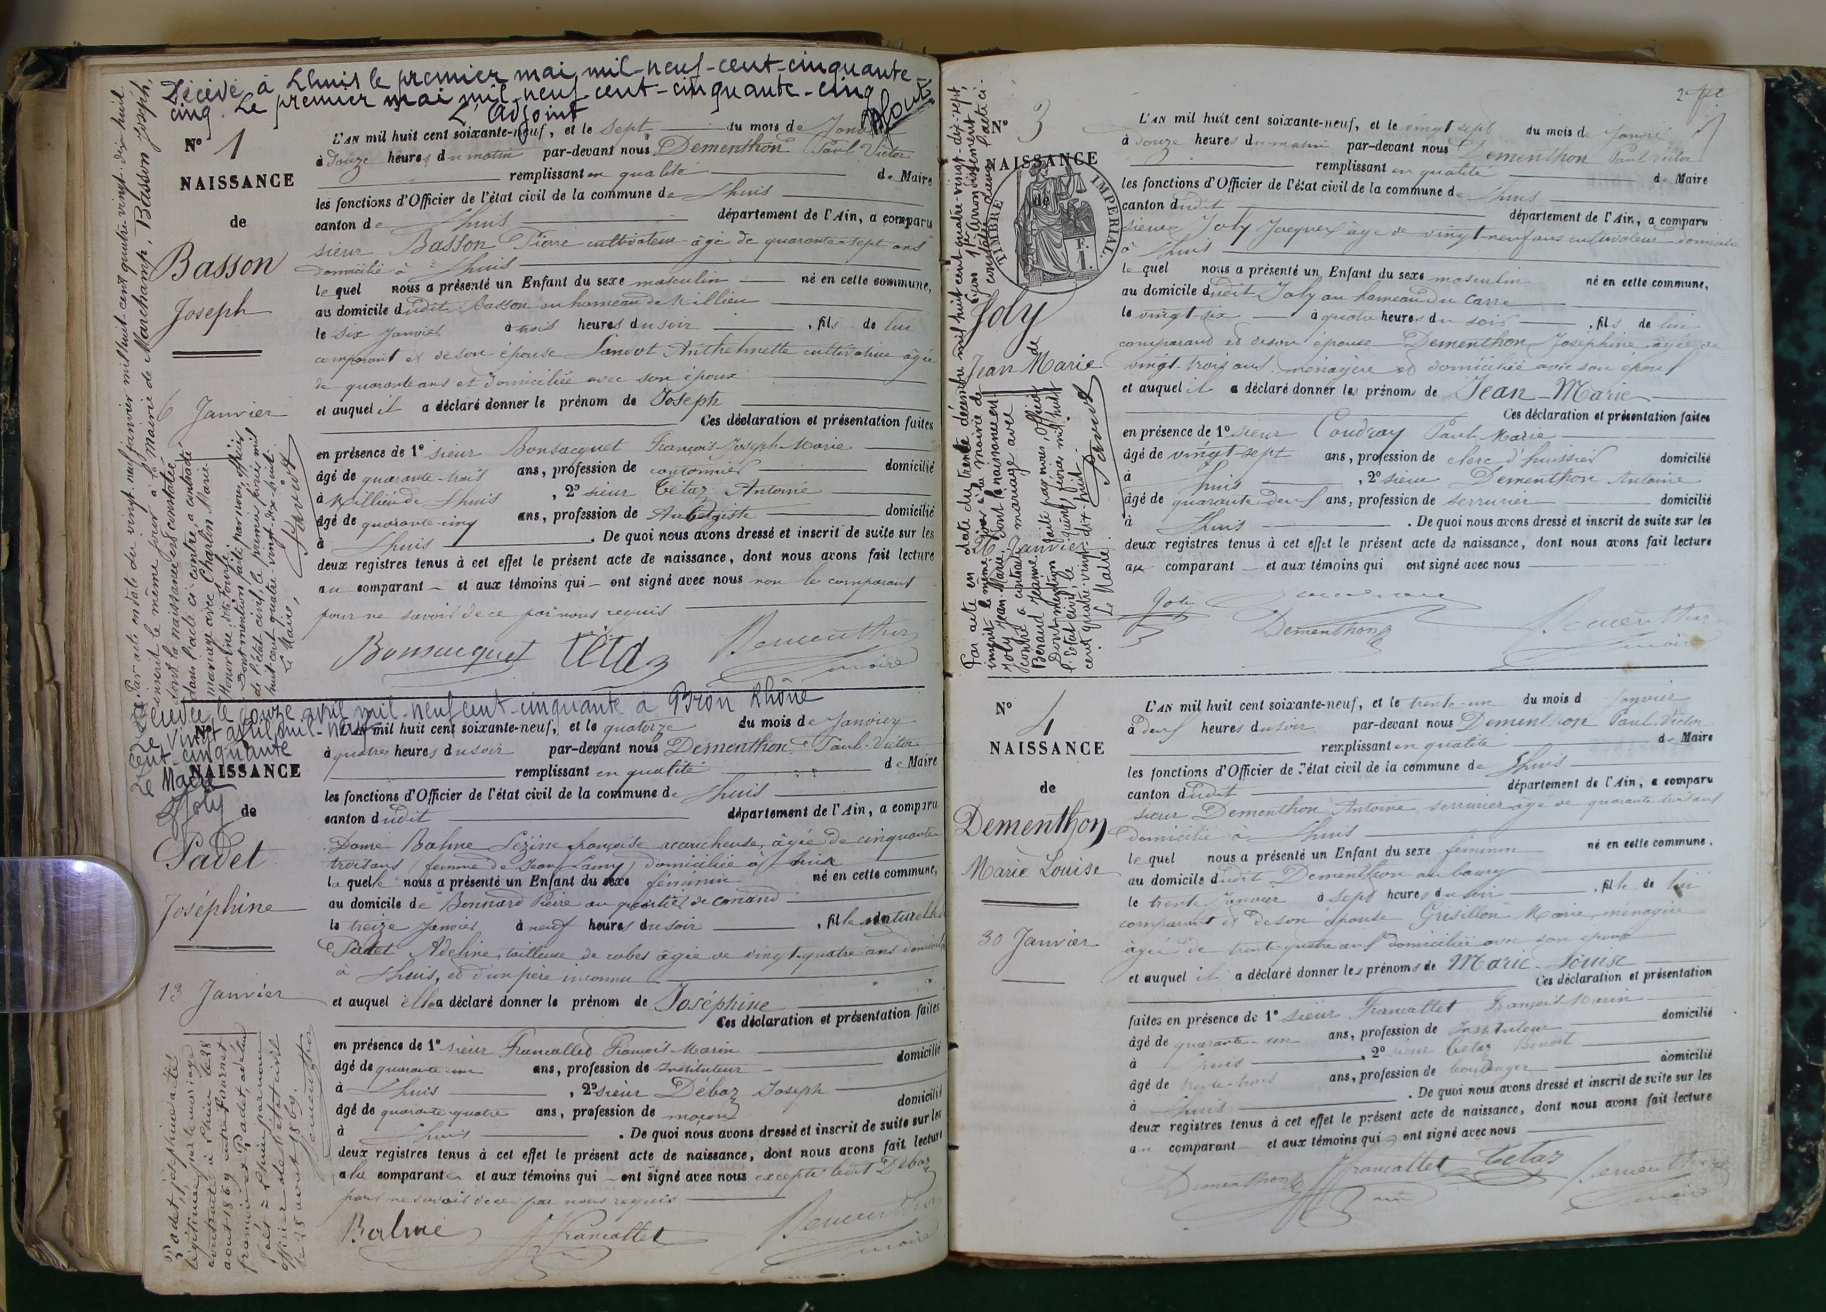 Décédé à Lhuis le premier mai mil-neuf-cent-cinquante-
cinq. Le premier mai mil-neuf-cent-cinquante-cinq
L'Adjoint
N° 1
NAISSANCE
de
Basson
Joseph
6 Janvier
L'AN mil huit cent soixante-neuf, et le sept du mois de Janvier
à douze heures du matin par-devant nous Dementhon Paul Victor
remplissant en qualité de Maire
les fonctions d'Officier de l'état civil de la commune de Lhuis
canton de Lhuis département de l'Ain, a comparu
sieur Basson Pierre cultivateur âgé de quarante-sept ans
domicilié à Lhuis
le quel nous a présenté un Enfant du sexe masculin né en cette commune,
au domicile dudit Basson au hameau de Millieu
le six Janvier à trois heures du soir, fils de lui
comparant et de son épouse Anthelmette cultivatrice âgée
de quarante ans et domiciliée avec son époux
et auquel il a déclaré donner le prénom de Joseph
Ces déclaration et présentation faites
en présence de 1° sieur Bonsacquet François Joseph Marie
âgé de quarante-trois ans, profession de cantonnier domicilié
à Millieu de Lhuis, 2° sieur Tétaz Antoine
âgé de quarante-cinq ans, profession de Aubergiste domicilié
à Lhuis. De quoi nous avons dressé et inscrit de suite sur les
deux registres tenus à cet effet le présent acte de naissance, dont nous avons fait lecture
au comparant et aux témoins qui ont signé avec nous non le comparant
pour ne savoir de ce par nous requis
Bonsacquet Tétaz Dementhon
maire
Par acte en date du vingt neuf janvier mil huit cent quatre vingt dix huit
inscrit le même jour à la Mairie de Marchamp, Basson Joseph,
dont la naissance est constatée
dans l'acte ci-contre a contracté
mariage avec Charlin Marie
Dont mention faite par nous, officier
de l'état civil, le premier février mil
huit cent quatre vingt dix huit.
Le Maire,
Décédée le douze avril mil-neuf cent-cinquante à Bron Rhône
Le vingt avril mil-neuf
cent-cinquante
Le Maire
Joly
NAISSANCE
de
Padet
Joséphine
13 Janvier
L'AN mil huit cent soixante-neuf, et le quatorze du mois de Janvier
à quatre heures du soir par-devant nous Dementhon Paul-Victor
remplissant en qualité de Maire
les fonctions d'Officier de l'état civil de la commune de Lhuis
canton dudit département de l'Ain, a comparu
Dame Balme Lézine françoise accoucheuse, âgée de cinquante
trois ans femme de Jean Lamy domiciliée à Lhuis
la quelle nous a présenté un Enfant du sexe féminin né en cette commune,
au domicile de Bonnard Pierre au quartier de conand
le treize Janvier à neuf heures du soir, fille naturelle
Padet Adeline, tailleuse de robes âgée de vingt-quatre ans domiciliée
à Lhuis, et d'un père inconnu
et auquel elle a déclaré donner le prénom de Joséphine
Ces déclaration et présentation faites
en présence de 1° sieur Francallet François Marin
âgé de quarante-un ans, profession de Instituteur domicilié
à Lhuis, 2° sieur Débaz Joseph
âgé de quarante quatre ans, profession de maçon domicilié
à Lhuis. De quoi nous avons dressé et inscrit de suite sur les
deux registres tenus à cet effet le présent acte de naissance, dont nous avons fait lecture
à la comparante et aux témoins qui ont signé avec nous excepté ledit Débaz
pour ne savoir de ce par nous requis
Balme Francallet Dementhon
maire
Padet, joséphine a été
légitimée par le mariage
contracté à Lhuis le 28
août 1869 entre
et Padet adeline
officier de l'état civil
le 28 août 1869.
Dementhon
N° 3
NAISSANCE
de
TIMBRE IMPÉRIAL
Joly
Jean Marie
26 Janvier
L'AN mil huit cent soixante-neuf, et le vingt sept du mois de Janvier
à douze heures du matin par-devant nous Dementhon Paul Victor
remplissant en qualité de Maire
les fonctions d'Officier de l'état civil de la commune de Lhuis
canton dudit département de l'Ain, a comparu
sieur Joly Jacques âgé de vingt-neuf ans cultivateur domicilié
à Lhuis
le quel nous a présenté un Enfant du sexe masculin né en cette commune,
au domicile dudit Joly au hameau du Carre
le vingt six à quatre heures du soir, fils de lui
comparant et de son épouse Dementhon Joséphine âgée de
vingt-trois ans ménagère et domiciliée avec son époux
et auquel il a déclaré donner les prénoms de Jean-Marie
Ces déclaration et présentation faites
en présence de 1° sieur Coudray Paul Marie
âgé de vingt-sept ans, profession de clerc d'huissier domicilié
à Lhuis, 2° sieur Dementhon Antoine
âgé de quarante deux ans, profession de serrurier domicilié
à Lhuis. De quoi nous avons dressé et inscrit de suite sur les
deux registres tenus à cet effet le présent acte de naissance, dont nous avons fait lecture
au comparant et aux témoins qui ont signé avec nous
Joly
Dementhon Dementhon
maire
Par acte en date du trente décembre mil huit cent quatre-vingt-dix-sept,
inscrit le même jour à la mairie de Lyon 1er Arrondissement
Joly Jean-Marie, dont la naissance est constatée dans l'acte ci-
contre a contracté mariage avec
Béraud Jeanne
Dont mention faite par nous, Officier
de l'état civil, le quinze février mil huit
cent quatre-vingt-dix-huit.
Le Maire
N° 4
NAISSANCE
de
Dementhon
Marie Louise
30 Janvier
L'AN mil huit cent soixante-neuf, et le trente-un du mois d Janvier
à deux heures du soir par-devant nous Dementhon Paul Victor
remplissant en qualité de Maire
les fonctions d'Officier de l'état civil de la commune de Lhuis
canton dudit département de l'Ain, a comparu
sieur Dementhon Antoine serrurier âgé de quarante trois ans
domicilié à Lhuis
le quel nous a présenté un Enfant du sexe féminin né en cette commune,
au domicile dudit Dementhon au bourg
le trente Janvier à sept heures du soir, fille de lui
comparant et de son épouse Gresillon Marie ménagère
âgée de trente-quatre ans domiciliée avec son époux
et auquel il a déclaré donner les prénoms de Marie-Louise
Ces déclaration et présentation
faites en présence de 1° sieur Francallet François Marin
âgé de quarante-un ans, profession de Instituteur domicilié
à Lhuis, 2° sieur Tétaz Benoit
âgé de trente-trois ans, profession de boulanger domicilié
à Lhuis. De quoi nous avons dressé et inscrit de suite sur les
deux registres tenus à cet effet le présent acte de naissance, dont nous avons fait lecture
au comparant et aux témoins qui ont signé avec nous
Dementhon Francallet Tétaz Dementhon
maire